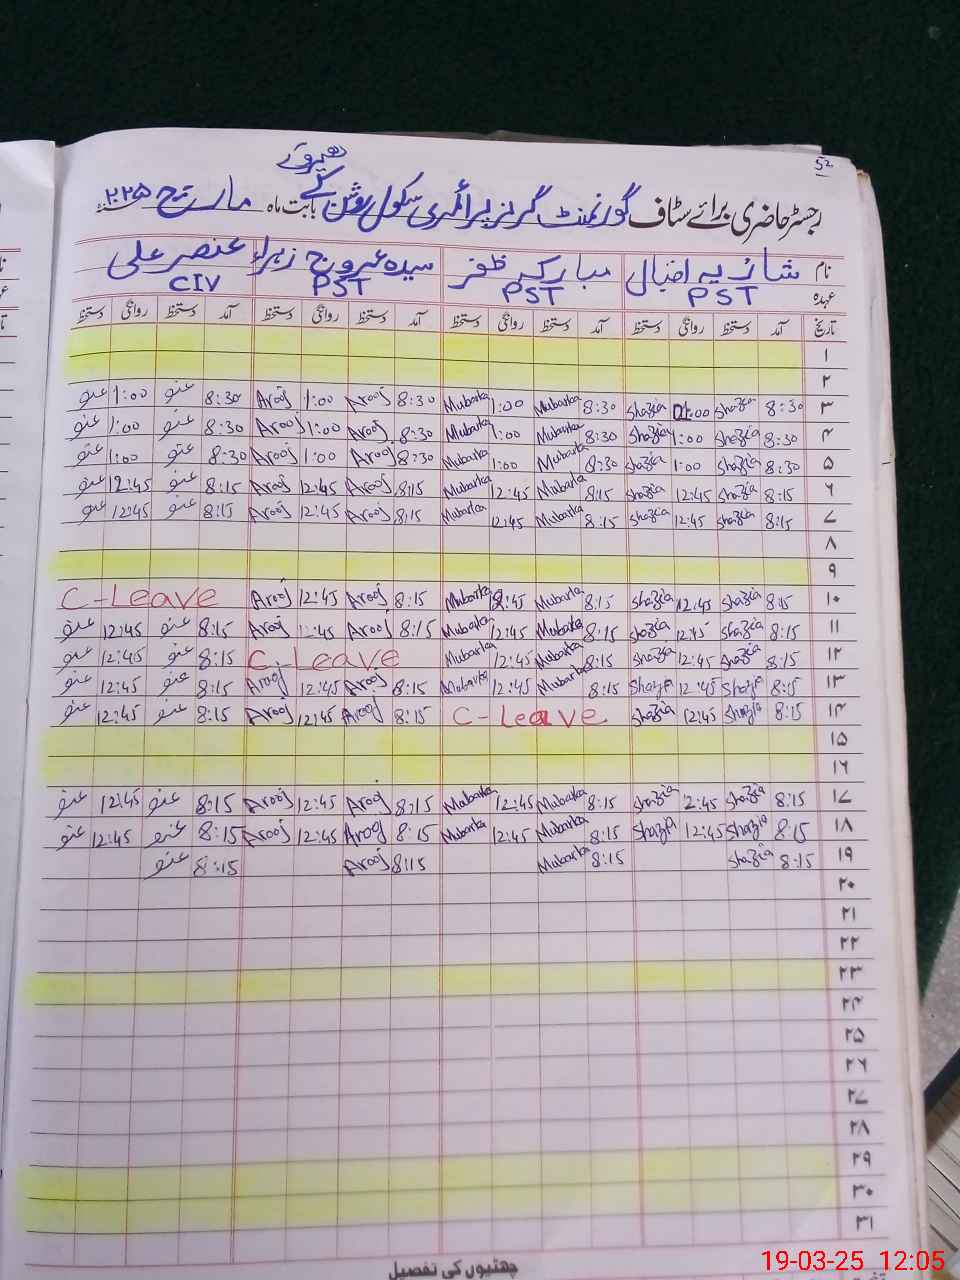 52
ھیروے
رجسٹر حاضری برائے سٹاف گورنمنٹ گرلز پرائمری سکول روشن کے بابت ماہ مارچ ۲۰۲۵
نام شازیہ اقبال مبارکہ ظفر سیدہ عروج زہراء عنصر علی
عہدہ PST PST PST CIV
تاریخ آمد دستخط روانگی دستخط آمد دستخط روانگی دستخط آمد دستخط روانگی دستخط آمد دستخط روانگی دستخط
۱
۲
۳ 8:30 Shazia 01:00 Shazia 8:30 Mubarka 1:00 Mubarka 8:30 Arooj 1:00 Arooj 8:30 عنصر 1:00 عنصر
۴ 8:30 Shazia 1:00 Shazia 8:30 Mubarka 1:00 Mubarka 8:30 Arooj 1:00 Arooj 8:30 عنصر 1:00 عنصر
۵ 8:30 Shazia 1:00 Shazia 8:30 Mubarka 1:00 Mubarka 8:30 Arooj 1:00 Arooj 8:30 عنصر 1:00 عنصر
۶ 8:15 Shazia 12:45 Shazia 8:15 Mubarka 12:45 Mubarka 8:15 Arooj 12:45 Arooj 8:15 عنصر 12:45 عنصر
۷ 8:15 Shazia 12:45 Shazia 8:15 Mubarka 12:45 Mubarka 8:15 Arooj 12:45 Arooj 8:15 عنصر 12:45 عنصر
۸
۹
۱۰ 8:15 Shazia 12:45 Shazia 8:15 Mubarka 12:45 Mubarka 8:15 Arooj 12:45 Arooj C-Leave
۱۱ 8:15 Shazia 12:45 Shazia 8:15 Mubarka 12:45 Mubarka 8:15 Arooj 12:45 Arooj 8:15 عنصر 12:45 عنصر
۱۲ 8:15 Shazia 12:45 Shazia 8:15 Mubarka 12:45 Mubarka C-Leave 8:15 عنصر 12:45 عنصر
۱۳ 8:15 Shazia 12:45 Shazia 8:15 Mubarka 12:45 Mubarka 8:15 Arooj 12:45 Arooj 8:15 عنصر 12:45 عنصر
۱۴ 8:15 Shazia 12:45 Shazia C-Leave 8:15 Arooj 12:45 Arooj 8:15 عنصر 12:45 عنصر
۱۵
۱۶
۱۷ 8:15 Shazia 2:45 Shazia 8:15 Mubarka 12:45 Mubarka 8:15 Arooj 12:45 Arooj 8:15 عنصر 12:45 عنصر
۱۸ 8:15 Shazia 12:45 Shazia 8:15 Mubarka 12:45 Mubarka 8:15 Arooj 12:45 Arooj 8:15 عنصر 12:45 عنصر
۱۹ 8:15 Shazia 8:15 Mubarka 8:15 Arooj 8:15 عنصر
۲۰
۲۱
۲۲
۲۳
۲۴
۲۵
۲۶
۲۷
۲۸
۲۹
۳۰
۳۱
چھٹیوں کی تفصیل
19-03-25 12:05